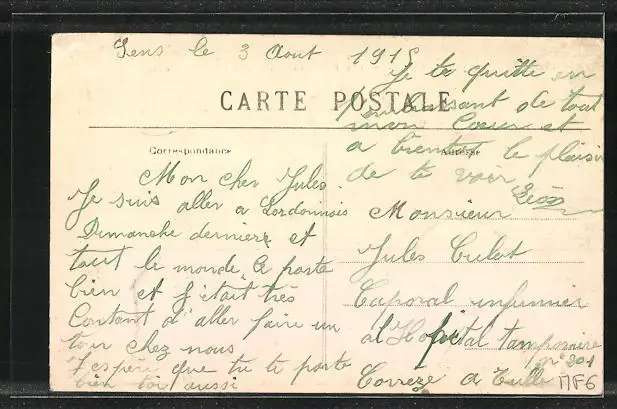 Sens le 3 Aout 1915
Je te quitte en
CARTE POSTALE
t'embrassant de tout
mon Coeur et
a bientot le plaisir
de te voir
Léon
Correspondance
Adresse
Mon cher Jules
Je suis aller a
Dimanche dernière et
tout le monde Ce porte
bien et j'était très
Contant d'aller faire un
tour chez nous
J'espère que tu te porte
bien toi aussi
Monsieur
Jules Culot
Caporal infirmier
al'Hopital temporaire
n° 201
Correze a Tulle
MF6